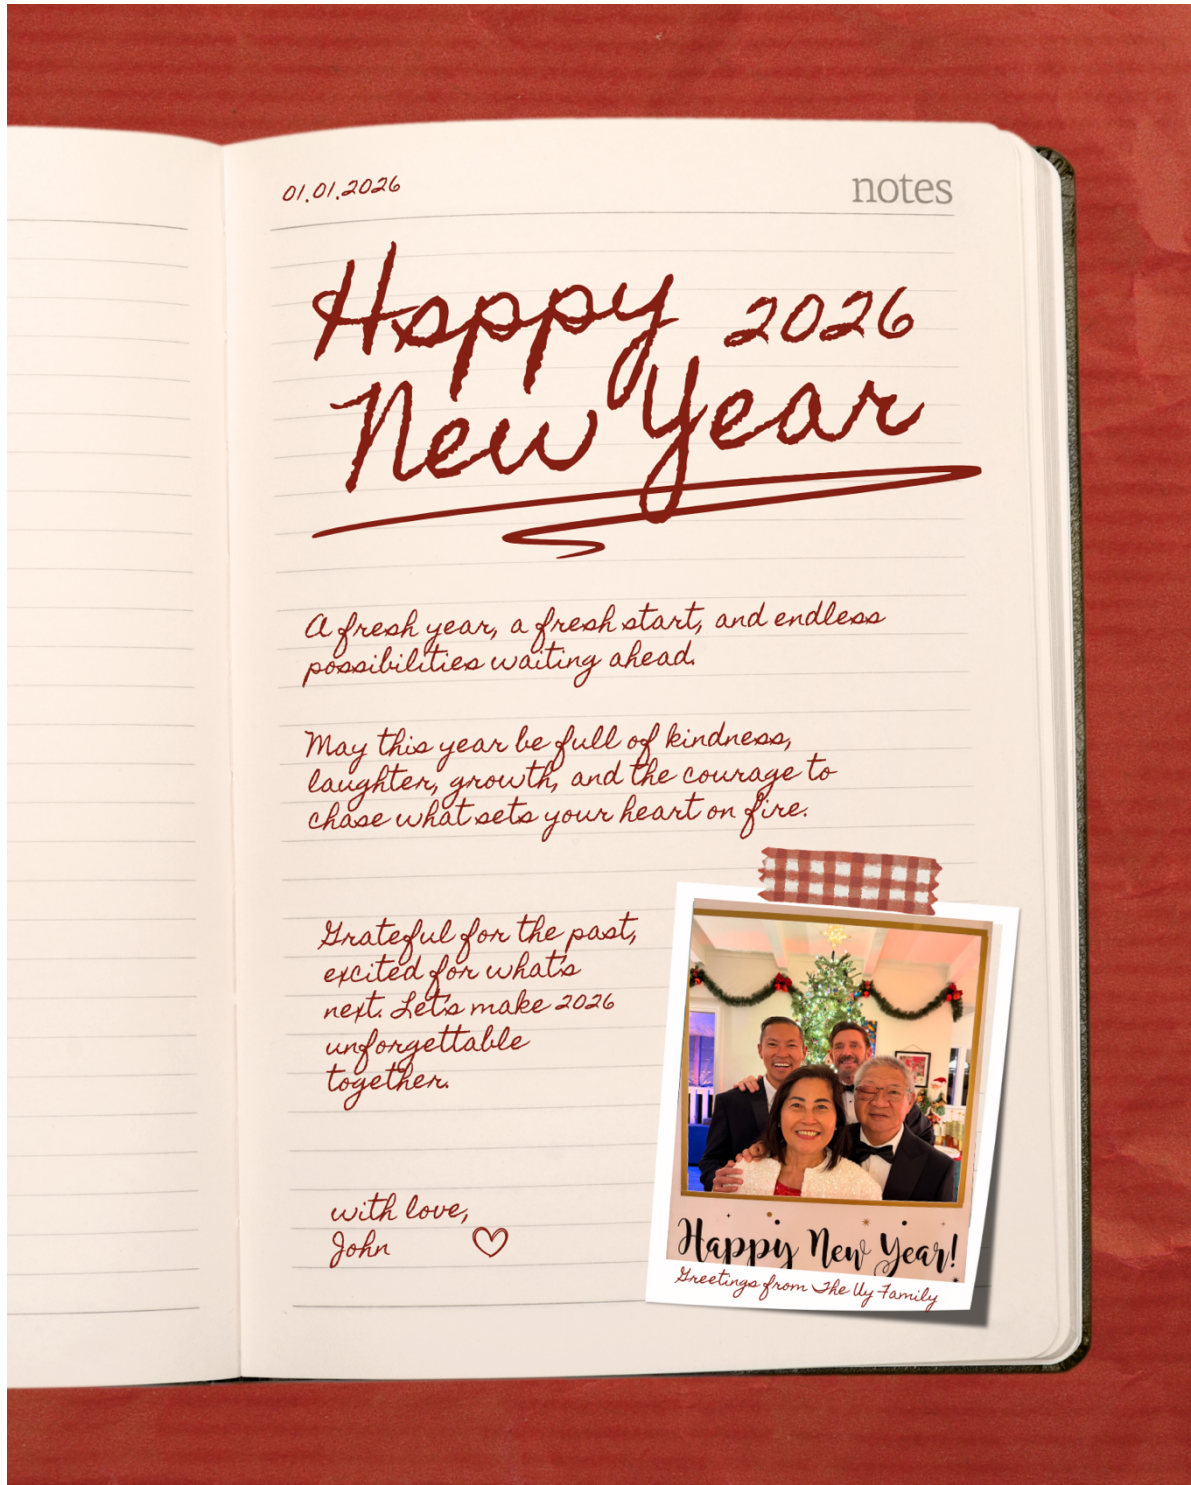 01.01.2026
notes
Happy 2026
New Year
A fresh year, a fresh start, and endless
possibilities waiting ahead.
May this year be full of kindness,
laughter, growth, and the courage to
chase what sets your heart on fire.
Grateful for the past,
excited for what's
next. Let's make 2026
unforgettable
together.
with love,
John
Happy New Year!
Greetings from The Uy Family